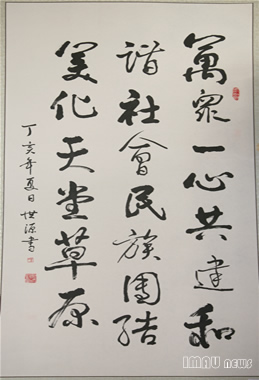 萬眾一心共建和
諧社會民族團結
美化天堂草原
丁亥年夏日 世源書
IMAU news